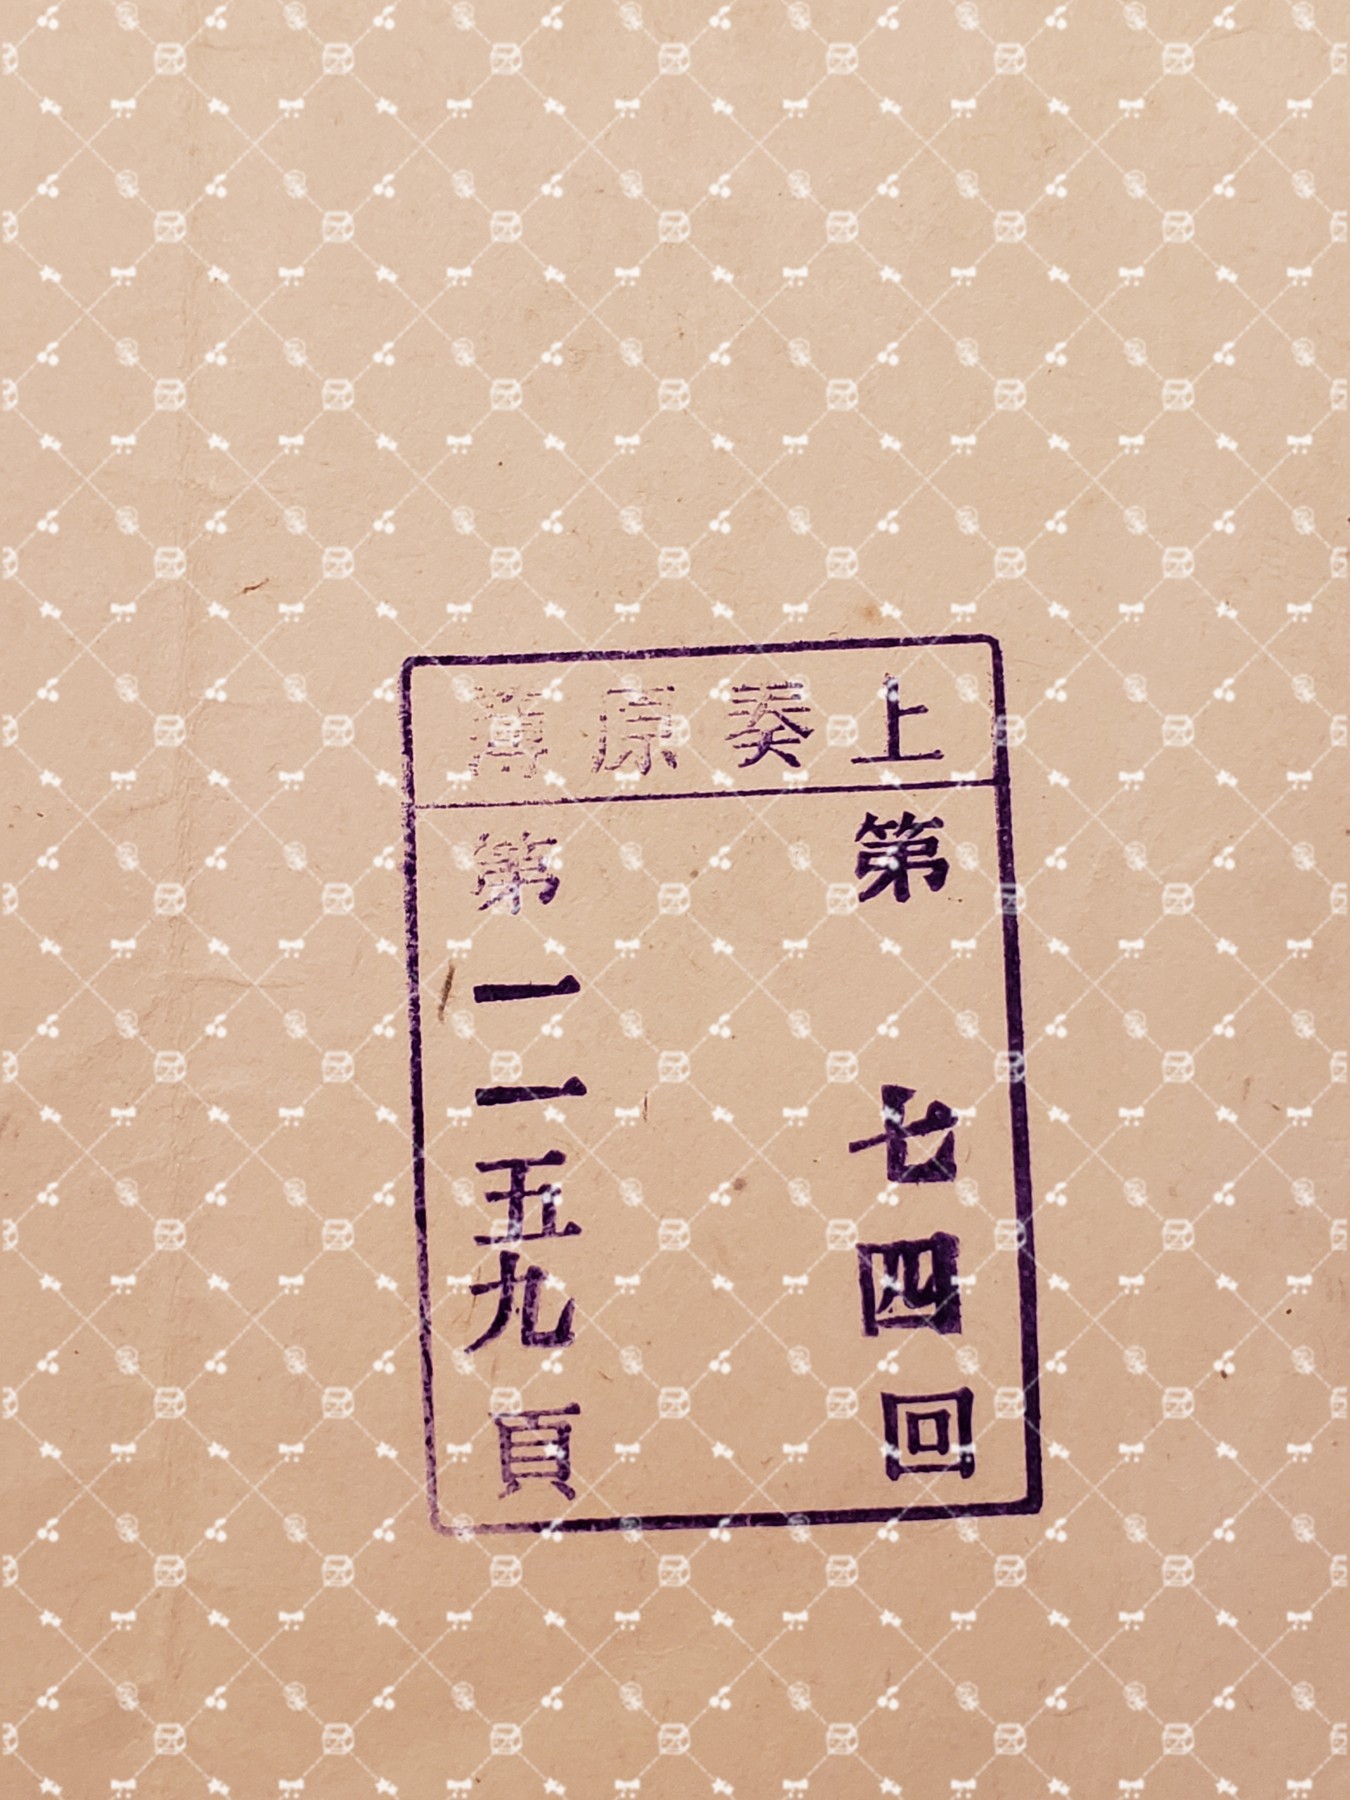 上奏原簿
第 七四回
第一一五九頁